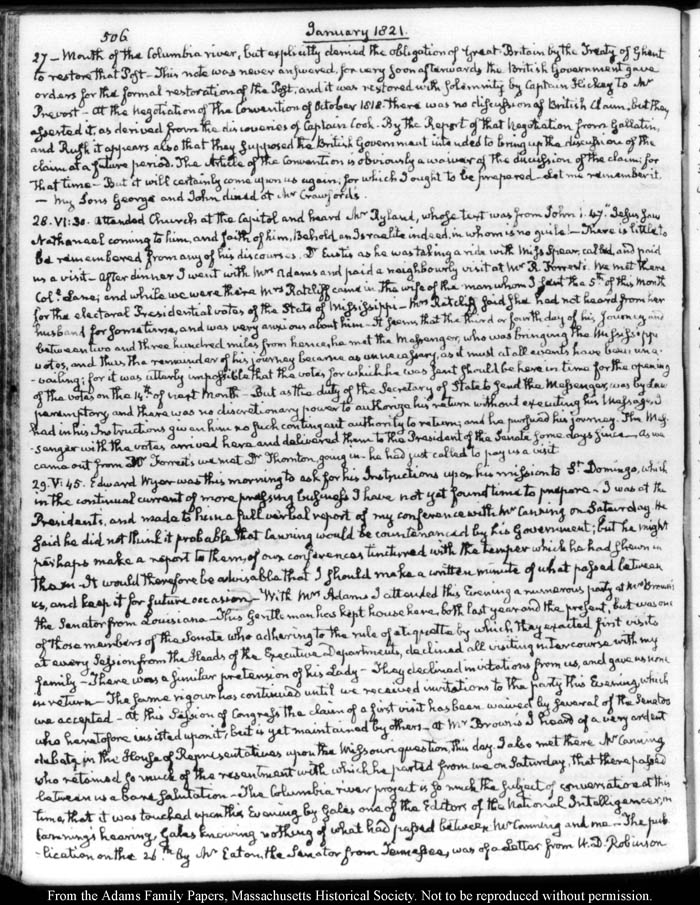 506
January 1821.
27 — Mouth of the Columbia river, but explicitly denied the obligation of Great-Britain by the Treaty of Ghent
to restore that Post — This note was never answered, for very soon afterwards the British Government gave
orders for the formal restoration of the Post, and it was restored with solemnity by Captain Hickey to Mr
Prevost — At the Negotiation of the Convention of October 1818 there was no discussion of British Claim, but they
asserted it, as derived from the discoveries of Captain Cook. By the Report of that Negotiation from Gallatin,
and Rush it appears also that they supposed the British Government intended to bring up the discussion of the
claim at a future period. The Article of the Convention is obviously a waiver of the discussion of the claim; for
that time — But it will certainly come upon us again; for which I ought to be prepared — Let me remember it.
— My Sons George and John dined at Mr Crawford's.
28. VI:30. Attended Church at the Capitol and heard Mr Ryland, whose text was from John 1. 47. "Jesus saw
Nathanael coming to him, and saith of him, Behold an Israelite indeed, in whom is no guile — There is little to
be remembered from any of his discourses. Dr Eustis as he was taking a ride with Miss Spear, called, and paid
us a visit — After dinner I went with Mrs Adams and paid a neighbourly visit at Mr R. Forrest's. We met there
Col. Lane; and while we were there Mrs Ratcliff came in the wife of the man whom I sent the 5th of this Month
for the electoral Presidential votes of the State of Mississippi — Mrs Ratcliff said she had not heard from her
husband for some time, and was very anxious about him — It seems that the third or fourth day of his Journey, and
between two and three hundred miles from hence, he met the Messenger, who was bringing the Mississippi
votes, and thus the remainder of his journey became as unnecessary, as it must at all events have been una-
-vailing; for it was utterly impossible that the votes for which he was sent should be here in time for the opening
of the votes on the 14th of next Month — But as the duty of the Secretary of State to send the Messenger, was by Law
peremptory, and there was no discretionary power to authorize his return without executing his Message, I
had in his Instructions given him no such contingent authority to return; and he pursued his journey. The Mes-
-senger with the votes arrived here and delivered them to the President of the Senate some days since — As we
came out from Mr Forrest's we met Dr Thornton going in — he had just called to pay us a visit
29. V:45. Edward Wyer was this morning to ask for his Instructions upon his mission to St. Domingo, which
in the continual current of more pressing business I have not yet found time to prepare — I was at the
Presidents, and made to him a full verbal report of my conference with Mr Canning on Saturday. He
said he did not think it probable that Canning would be countenanced by his Government; but he might
perhaps make a report to them, of our conferences tinctured with the temper which he had shewn in
them — It would therefore be advisable that I should make a written minute of what passed between
us, and keep it for future occasion — With Mrs Adams I attended this Evening a numerous party at Mr Brown's
the Senator from Louisiana — This Gentleman has kept house here, both last year and the present, but was one
of those members of the Senate who adhering to the rule of etiquette by which, they exacted first visits
at every Session from the Heads of the Executive Departments, declined all visiting intercourse with my
family — There was a similar pretension of his Lady — They declined invitations from us, and gave us none
in return — The same rigour has continued until we received invitations to the party this Evening, which
we accepted — At this Session of Congress the claim of a first visit has been waived by several of the Senators
who heretofore insisted upon it, but is yet maintained by others — At Mr Brown's I heard of a very ardent
debate in the House of Representatives upon the Missouri question, this day. I also met there Mr Canning
who retained so much of the resentment with which he parted from me on Saturday, that there passed
between us a bare salutation — The Columbia river project is so much the subject of conversation at this
time, that it was touched upon this Evening by Gales one of the Editors of the National Intelligencer, in
Canning's hearing, Gales knowing nothing of what had passed between Mr Canning and me — The pub-
-lication on the 26th by Mr Eaton, the Senator from Tennessee, was of a Letter from W. D. Robinson
From the Adams Family Papers, Massachusetts Historical Society. Not to be reproduced without permission.